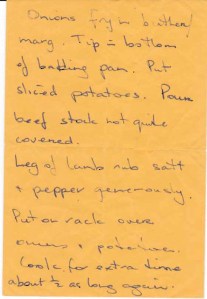 Onions fry in butter/
marg. Tip in bottom
of baking pan. Put
sliced potatoes. Pour
beef stock not quite
covered.
Leg of lamb rub salt
& pepper generously.
Put on rack over
onions & potatoes.
Cook for extra time
about ½ as long again.